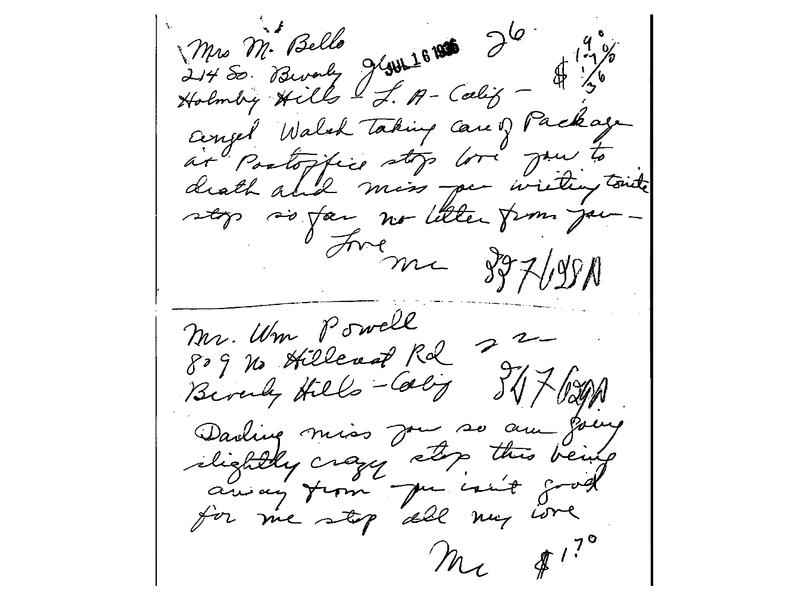 Mrs M. Bello
JUL 16 1936
26
214 So. Beverly
Holmby Hills - L. A - Calif -
angel Walsh taking care of Package
at Postoffice stop love you to
death and miss you writing tonite
stop so far no letter from you -
Love
Me
Mr. Wm Powell
22
809 No Hillcrest Rd
Beverly Hills - Calif
Darling miss you so am going
slightly crazy stop this being
away from you isn't good
for me stop all my love
Me
$1.70